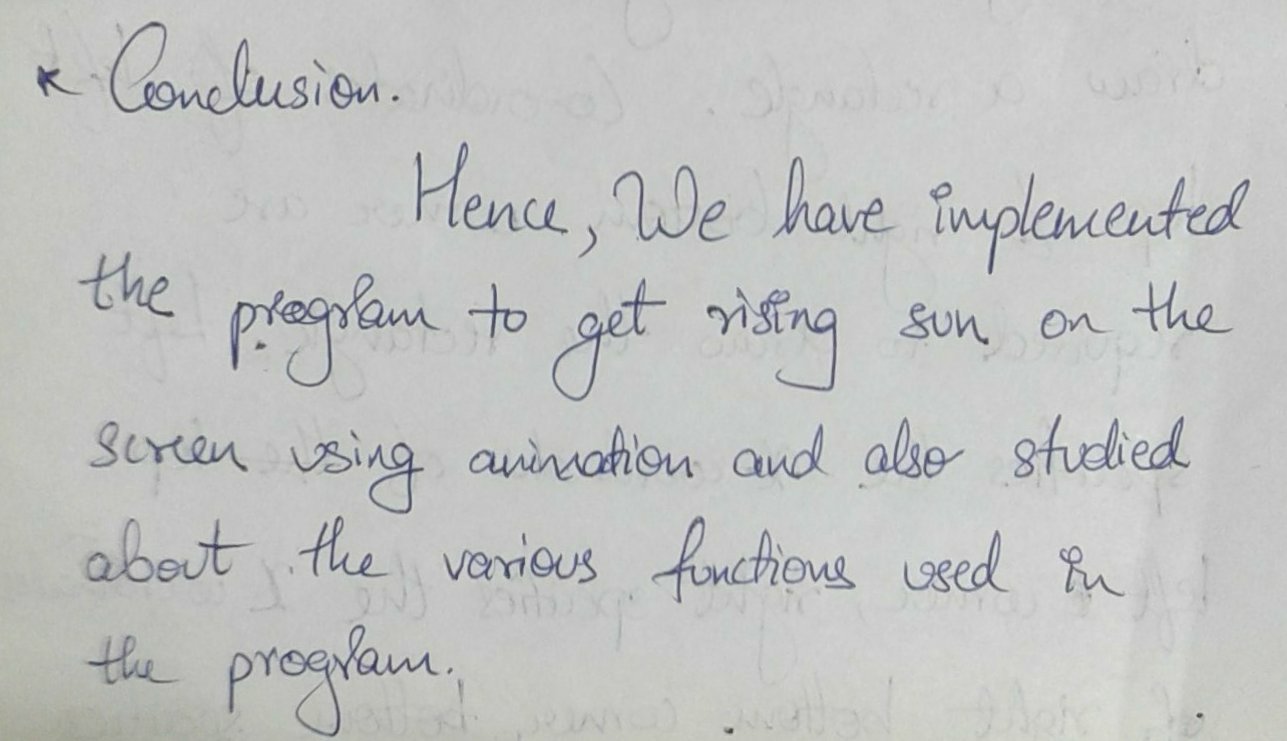 * Conclusion.
Hence, We have implemented
the program to get rising sun on the
screen using animation and also studied
about the various functions used in
the program.